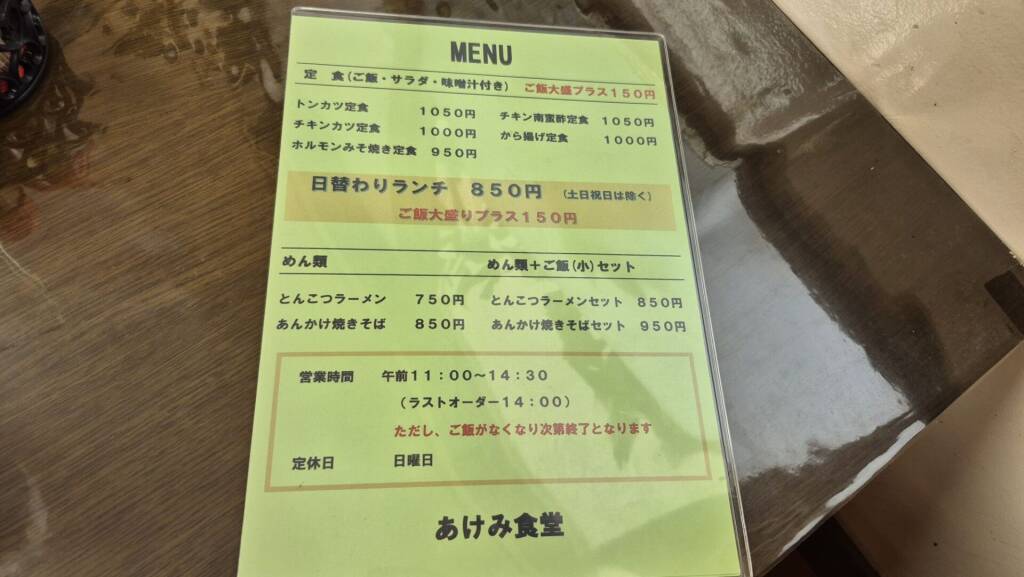 MENU
定 食(ご飯・サラダ・味噌汁付き) ご飯大盛プラス１５０円
トンカツ定食 １０５０円 チキン南蛮酢定食 １０５０円
チキンカツ定食 １０００円 から揚げ定食 １０００円
ホルモンみそ焼き定食 ９５０円
日替わりランチ ８５０円 (土日祝日は除く)
ご飯大盛りプラス１５０円
めん類 めん類＋ご飯(小)セット
とんこつラーメン ７５０円 とんこつラーメンセット ８５０円
あんかけ焼きそば ８５０円 あんかけ焼きそばセット ９５０円
営業時間 午前１１：００～１４：３０
(ラストオーダー１４：００)
ただし、ご飯がなくなり次第終了となります
定休日 日曜日
あけみ食堂